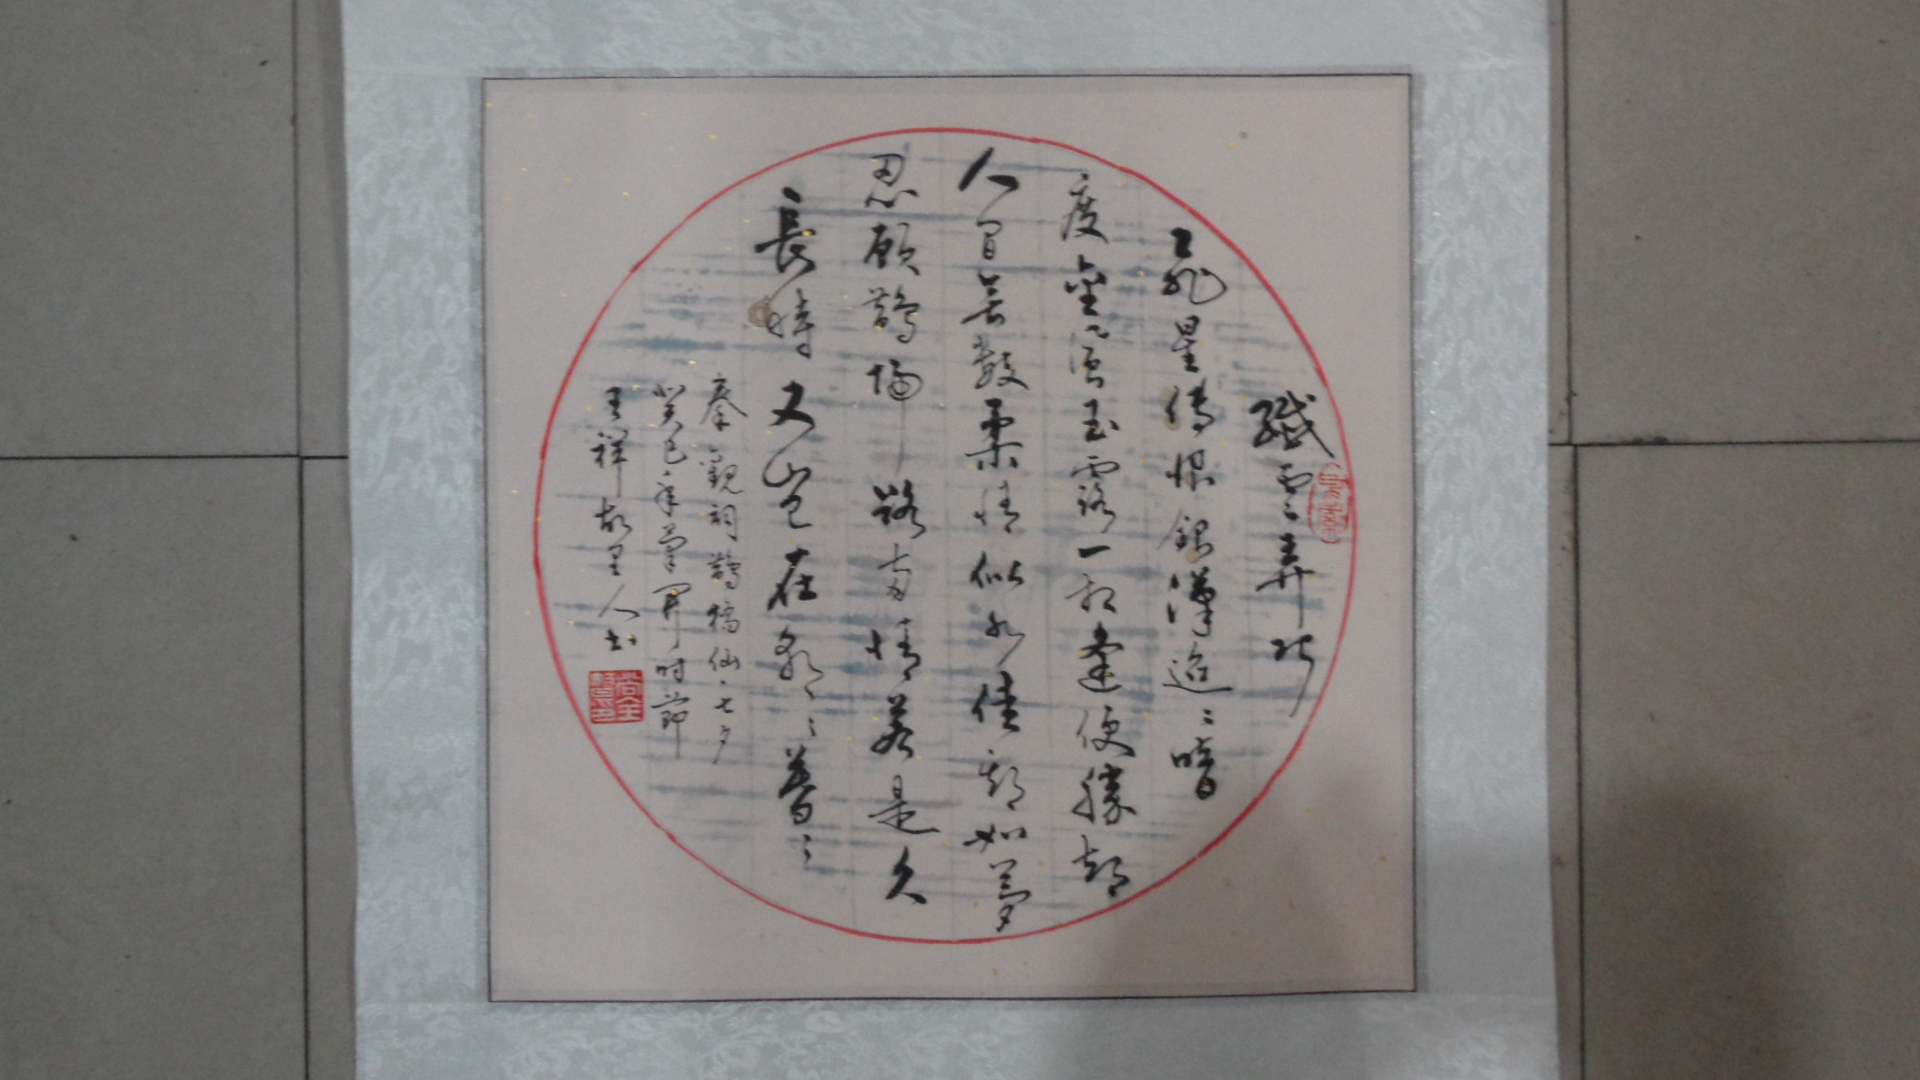 纖雲弄巧
飛星傳恨銀漢迢〻暗
度金風玉露一相逢便勝却
人间無數柔情似水佳期如夢
忍顧鵲橋歸路两情若是久
長時又豈在朝〻暮〻
秦觀詞鵲橋仙·七夕
癸巳年菊月时節
羊祥故里人书